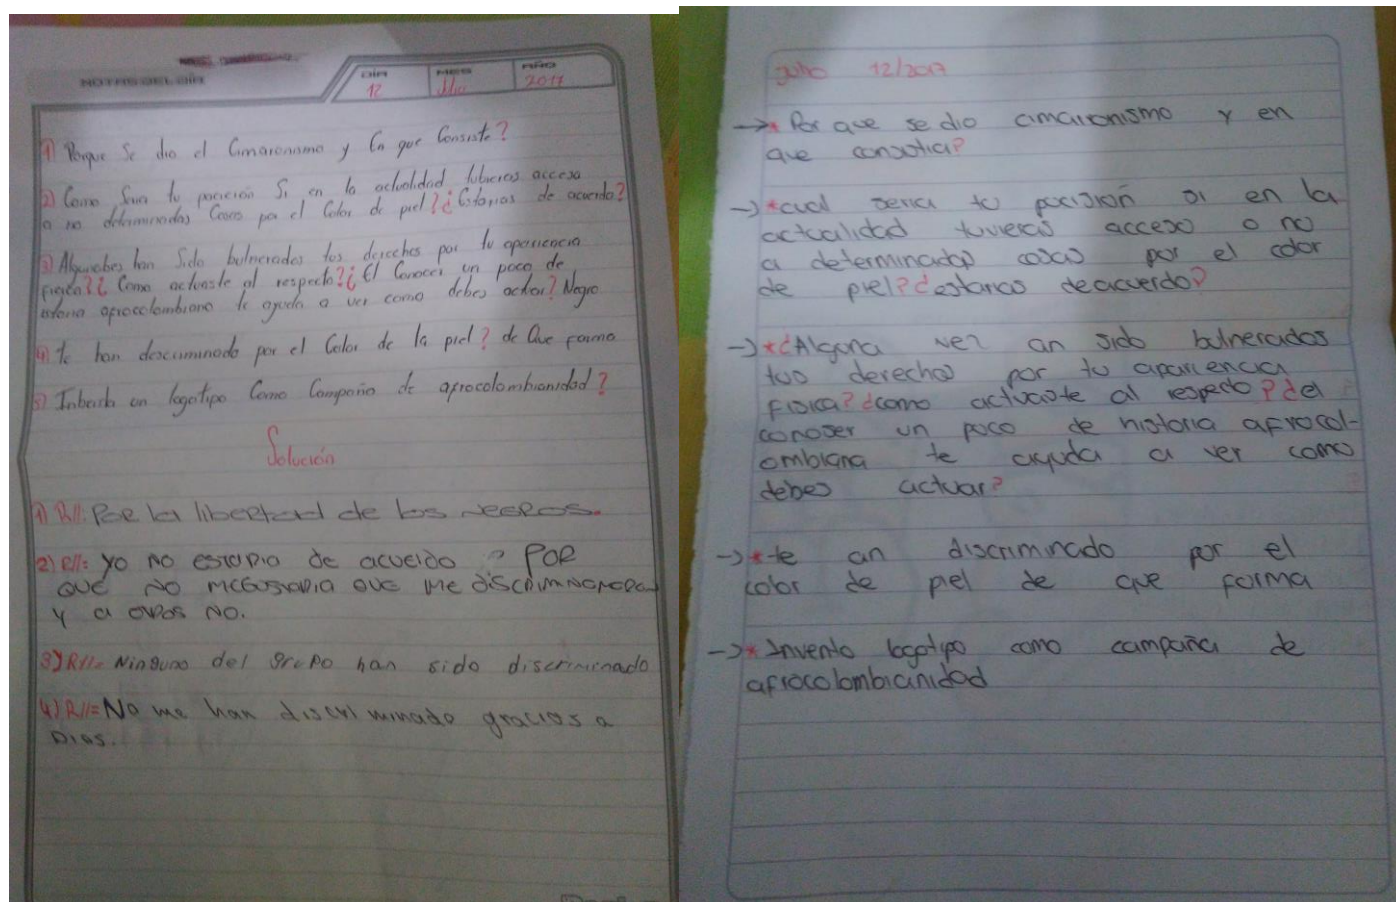 NOTAS DEL DÍA
DÍA MES AÑO
12 Julio 2017
1) Porque Se dio el Cimaronismo y En que Consiste?
2) Como Seria tu posicion Si en la actualidad tubieras acceso
o no determinadas Cosas por el Color de piel?¿Estarias de acuerdo?
3) Algunabes han Sido bulnerados tus derechos por tu apariencia
fisica?¿Como actuaste al respecto?¿El Conocer un poco de
istoria afrocolombiano te ayuda a ver como debes actuar? Negro
4) te han descriminado por el Color de la piel? de Que forma
5) Inbenta un logotipo Como Campaña de afrocolombianidad?
Solución
1) R//: Por la libertad de los negros.
2) R//= Yo no estaria de acuerdo ? POR
QUE NO MEGUSTARIA QUE ME DISCRIMINARAN
Y a otros NO.
3) R//= Ninguno del grupo han sido discriminado
4) R//= No me han discriminado gracios a
Dios.
Julio 12/2017
→ * Por que se dio cimarronismo y en
que consistia?
→ * cual seria tu posision si en la
actualidad tuvieras acceso o no
a determinadas cosas por el color
de piel?¿estarias deacuerdo?
→ *¿Alguna vez an sido bulnerados
tus derechos por tu apariencia
fisica?¿como actuaste al respecto?¿el
conocer un poco de historia afrocol-
ombiana te ayuda a ver como
debes actuar?
→ * te an discriminado por el
color de piel de que forma
→ * Invento logotipo como campaña de
afrocolombianidad